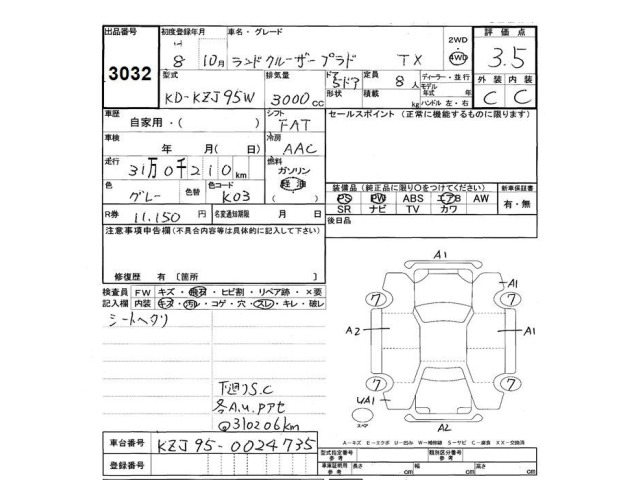 出品番号 初度登録年月 車名・グレード 2WD 評価点
3032 8 10月 ランドクルーザープラド TX 4WD 3.5
型式 排気量 ドア形状 定員 ディーラー・並行 外装 内装
KD-KZJ95W 3000cc 5ドア 8人 モデル年式 年 C C
積載 kg ハンドル 左・右
車歴 シフト セールスポイント (正常に機能するものに限ります)
自家用・( ) FAT
車検 冷房
年 月( 日) AAC
走行 燃料
31万0千210km ガソリン
軽油
( )
色 色替 色コード 装備品(純正品に限り〇をつけてください) 新車保証書
グレー K03 PS PW ABS エアB AW 有・無
R券 名変通知期限 SR ナビ TV カワ
11,150円 月 日 後日品
注意事項申告欄(不具合内容等は具体的に記入して下さい)
修復歴 有 [箇所 ]
検査員 FW キズ・飛石・ヒビ割・リペア跡・×要
記入欄 内装 キズ・汚れ・コゲ・穴・スレ・キレ・破レ
シートヘタリ
下廻りS.C
各A.U.Pアセ
@310206km
A1
A1
7 7
A2 A1
7 7
UA1
スペア
A2
車台番号 KZJ95-0024735
登録番号
A-キズ E-エクボ U-凹み W-補修跡 S-サビ C-腐食 XX-交換済
型式指定番号 参考 類別区分番号 参考
車庫証明用 参考 長さ cm 幅 cm 高さ cm